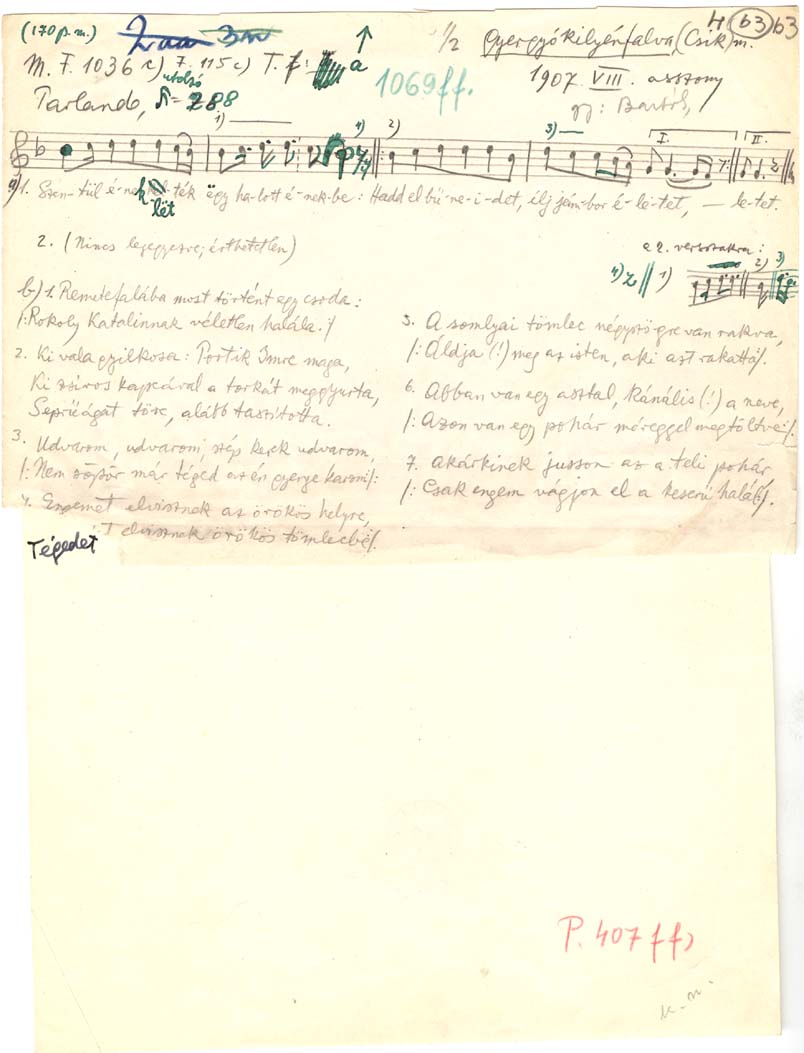 (170 p.m.)
1/2 Gyergyókilyénfalva, (Csík) m. 4 63 63
M. F. 1036 c) F. 115 c) T. f: a
1069 ff.
1907. VIII. asszony
Parlando, utolsó ♪= 288
gy: Bartók,
1) 4) 2) 3) I. II.
a) 1. Szën-tül é-nek-lët ëgy ha-lott é-nek-be: Hadd el bű-ne-i-det, élj jám-bor é-le-tet, — le-tet.
2. (Nincs lejegyezve; érthetetlen)
a 2. versszakra:
4) 1) 2) 3)
b) 1. Remetefalába most történt egy csoda:
/:Rokoly Katalinnak véletlen halála.:/
2. Ki vala gyilkosa: Portik Imre maga,
Ki zsíros kapcával a torkát meggyurta,
Seprűágat törc, alább taszította.
3. Udvarom, udvarom, szép kerek udvarom,
/:Nem söpör már téged az én gyenge karom/:
4. Engemet elvisznek az örökös helyre,
Tégedet elvisznek örökös tömlecbe/.
5. A somlyai tömlec négyszögre van rakva,
/: Áldja (!) meg az isten, aki azt rakatta:/.
6. Abban van egy asztal, kánális (!) a neve,
/: Azon van egy pohár méreggel megtöltve:/.
7. Akárkinek jusson az a teli pohár
/: Csak engem vágjon el a keserű halál:/.
P. 407 ff)